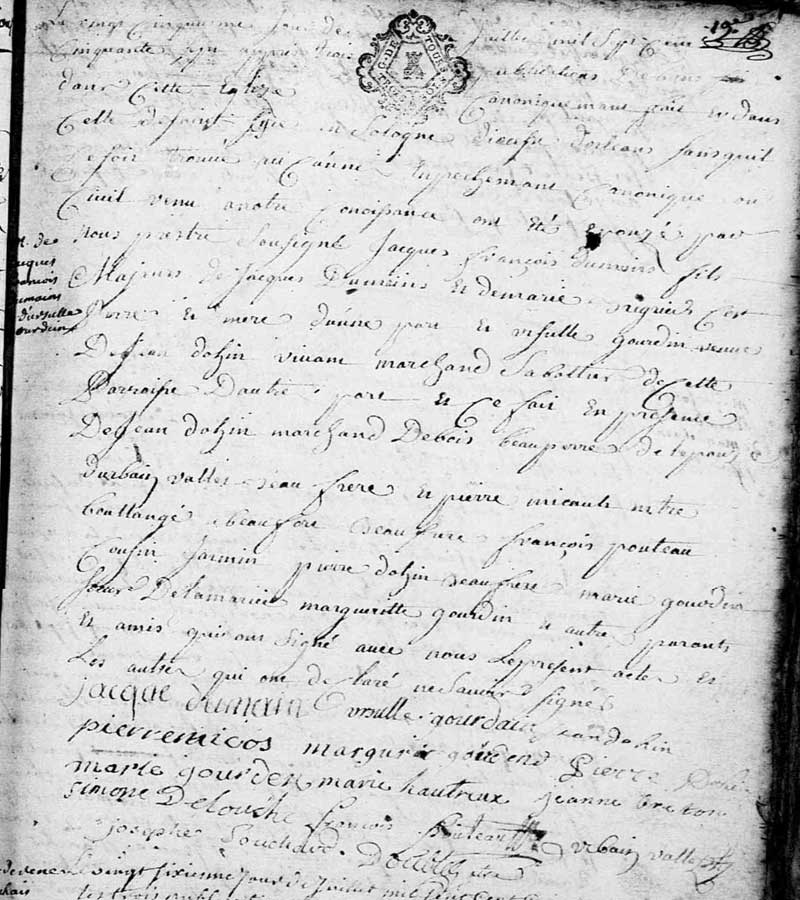 Le vingt Cinquieme jour de juillet mil Sept Cent
Cinquante un apprez trois publications
dans Cette Eglise Canoniquemant fait et dans
Celle de saint Cyr en Sologne diocese dorleans sansquil
se soit trouvé aucunne Enpechemant Canonique ou
Civil venu anotre Concoissance ont été Epouzé par
nous prestre Sousigné Jacques françois Dumains fils
Majeurs de Jacques Dumains Et demarie
perre Et mere dunne part Et ursulle gourdin veuve
De Jean dohin vivant marchand Sabottier de Cette
Parroisse Dautre part Et Ce fait En presence
De Jean dohin marchand Debois beauperre de lepouze
durbain vallée beau frere Et pierre micault mtre
boullangé beaufrere françois pouteau
Cousin Jarmin pierre dohin beaufrere marie gourdin
soeur De lamariée margueritte gourdin et autre parants
Et amis qui ont Signé avec nous Lepresent acte Et
Les autre qui ont declaré ne Savoir Signé
jacque dumain ursulle gourdain jean dohin
pierre micos margurit gourdend Pierre
marie gourden marie hautreux jeanne breton
simone Delouche françois pouteau urbain vallée
josephe
Le vingt sixiesme jour de juillet mil sept cent
les trois
G. DE TOURS
19e
M. de
jacques
francois
dumains
d'ursulle
gourdain